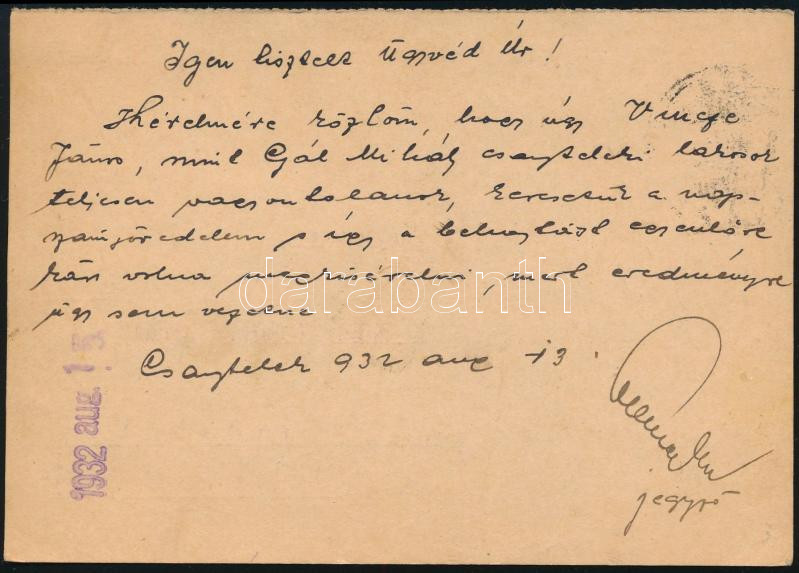 Igen tisztelt Ügyvéd Úr!
Kérelmére közlöm, hogy úgy Vincze
János, mint Gál Mihály csanyteleki lakosok
teljesen vagyontalanok, keresetük a nap-
számjövedelem s így a behajtást egyenlőre
kár volna megkisérelni, mert eredményre
úgy sem vezetne
Csanytelek 932 aug 13.
jegyző
1932 aug. 15
darabanth